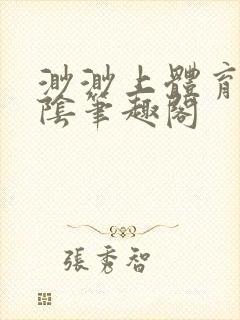 渺渺上體育
陰筆趣閣
張秀智